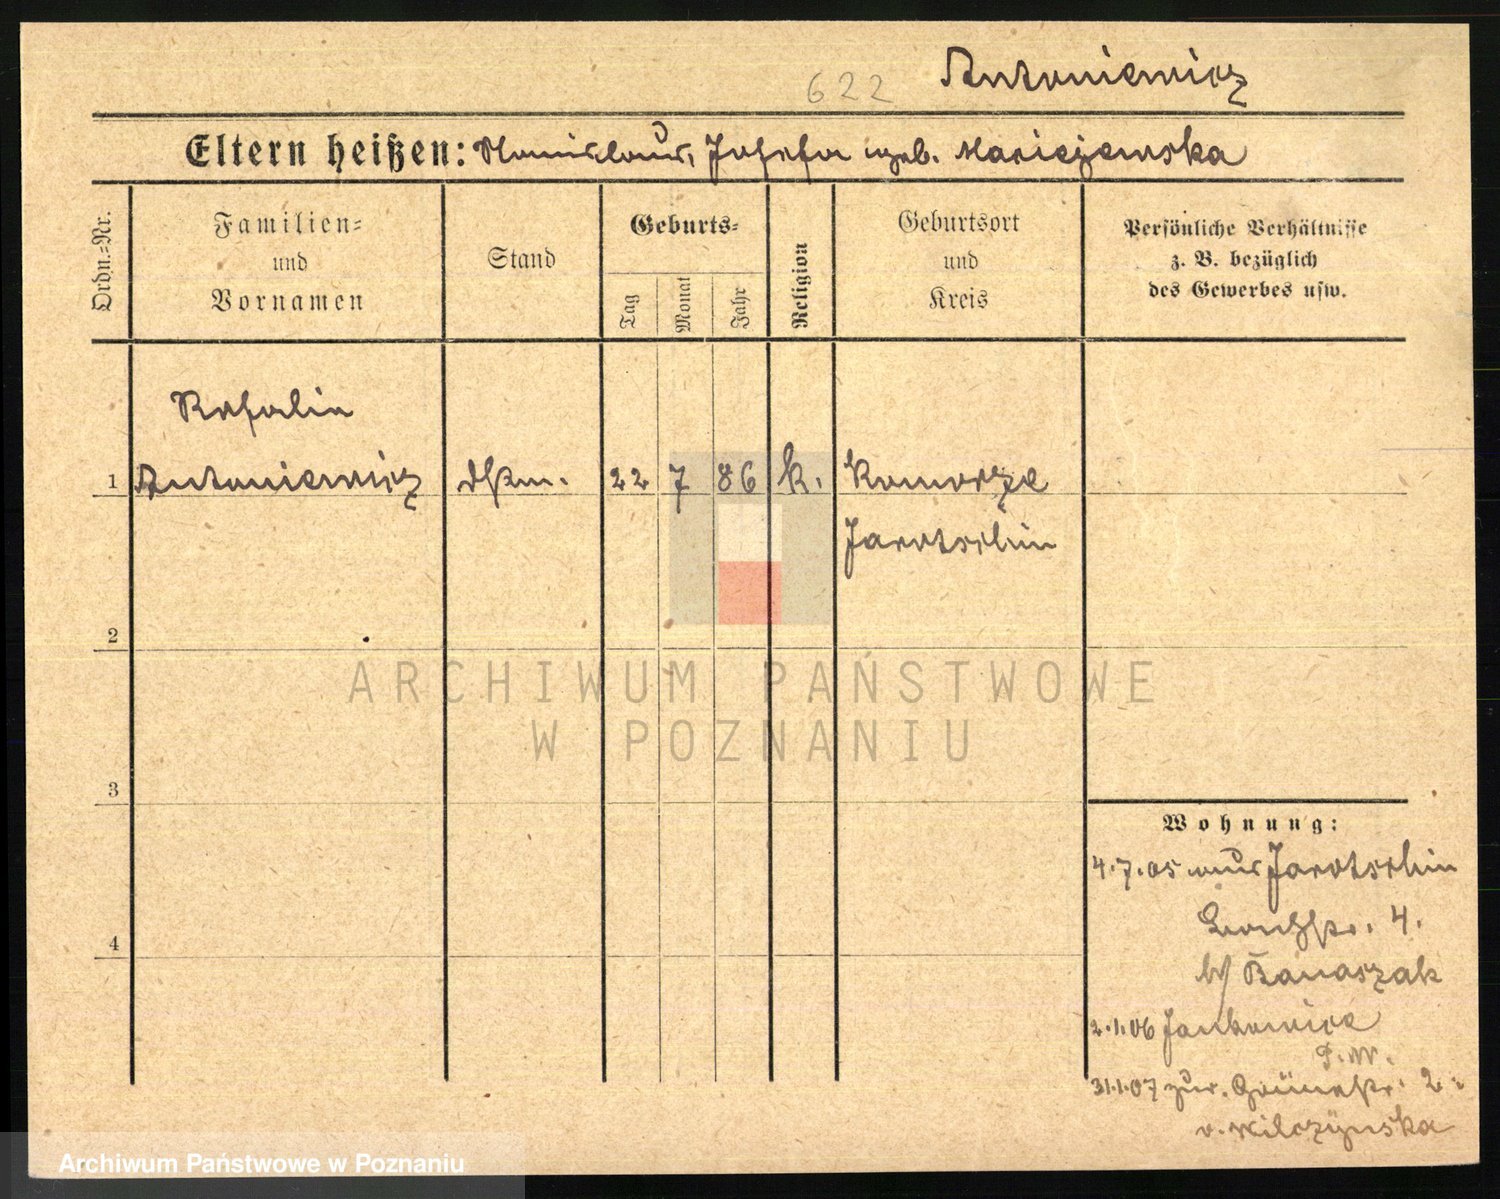 622 Antoniewicz
Eltern heißen: Stanislaus, Josefa geb. Maciejewska
Ordn.-Nr.
Familien-
und
Vornamen
Stand
Geburts-
Tag
Monat
Jahr
Religion
Geburtsort
und
Kreis
Persönliche Verhältnisse
z. B. bezüglich
des Gewerbes usw.
Rosalie
1 Antoniewicz dstm. 22 7 86 k. Komorze
Jarotschin
2
ARCHIWUM PAŃSTWOWE
W POZNANIU
3
Wohnung:
4.7.05 aus Jarotschin
4.
b/ Banaszak
4
2.1.06 Jankowice
P.W.
31.1.07 zur. Grünestr. 2
v. Wilczynska
Archiwum Państwowe w Poznaniu